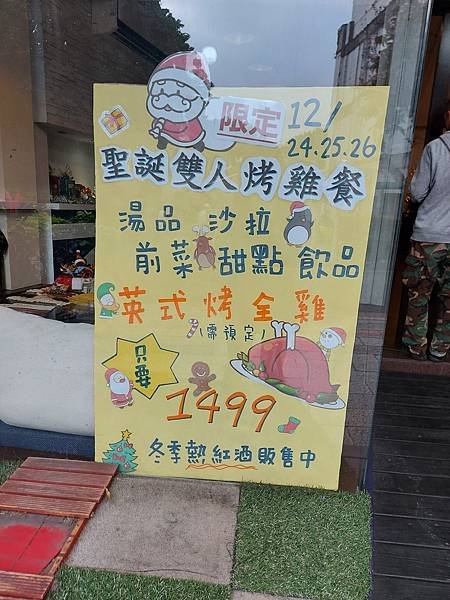 限定 12/
24.25.26
聖誕雙人烤雞餐
湯品 沙拉
前菜 甜點 飲品
英式烤全雞
(需預定)
只要
1499
冬季熱紅酒販售中